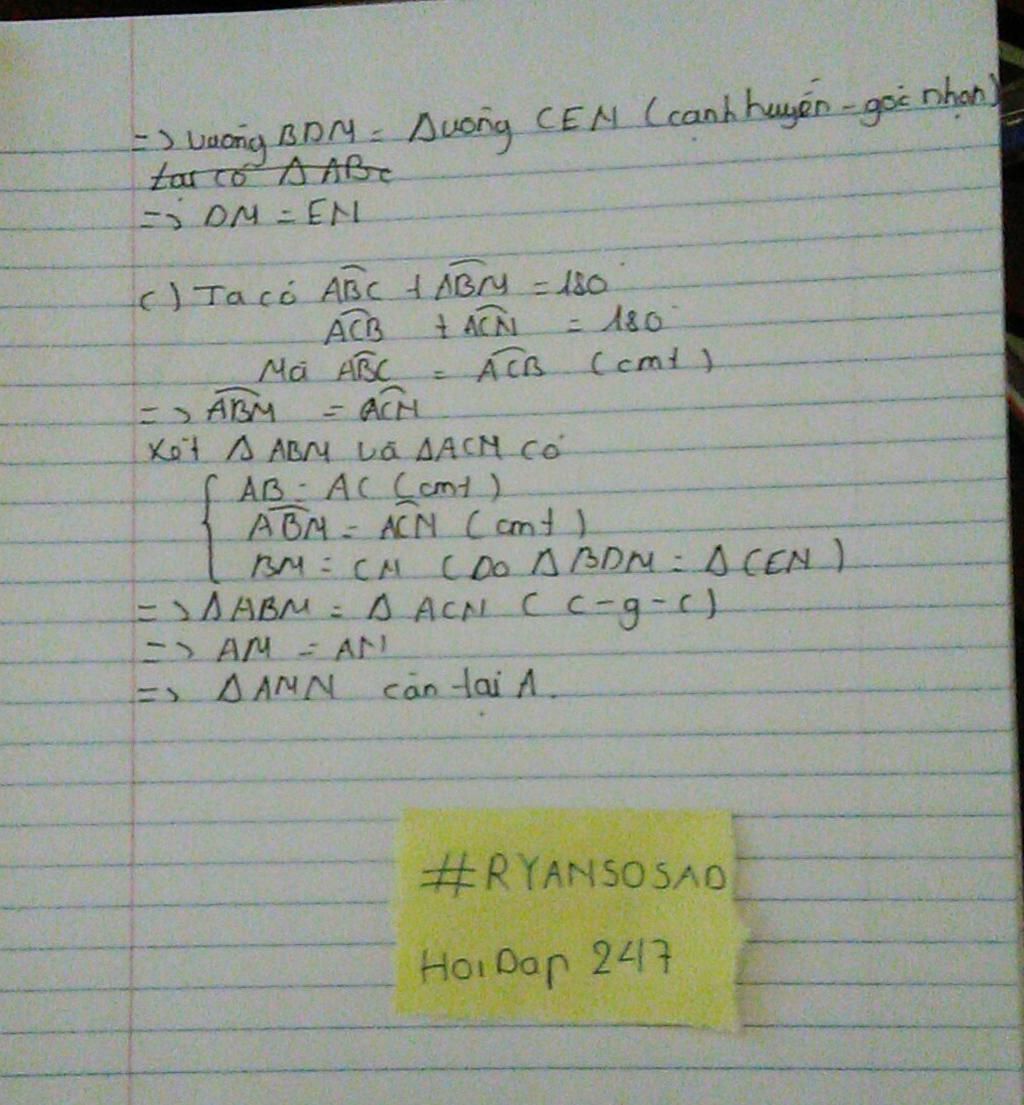 => vuông BDM = Δ vuông CEN (cạnh huyền - góc nhọn)
ta có Δ ABC
=> DM = EN
c) Ta có ABC + ABM = 180°
ACB + ACN = 180°
Mà ABC = ACB (cmt)
=> ABM = ACN
Xét Δ ABM và Δ ACN có
AB = AC (cmt)
ABM = ACN (cmt)
BM = CN (Do Δ BDM = Δ CEN)
=> Δ ABM = Δ ACN (c-g-c)
=> AM = AN
=> Δ AMN cân tại A.
#RYANSOSAD
HoiDap 247